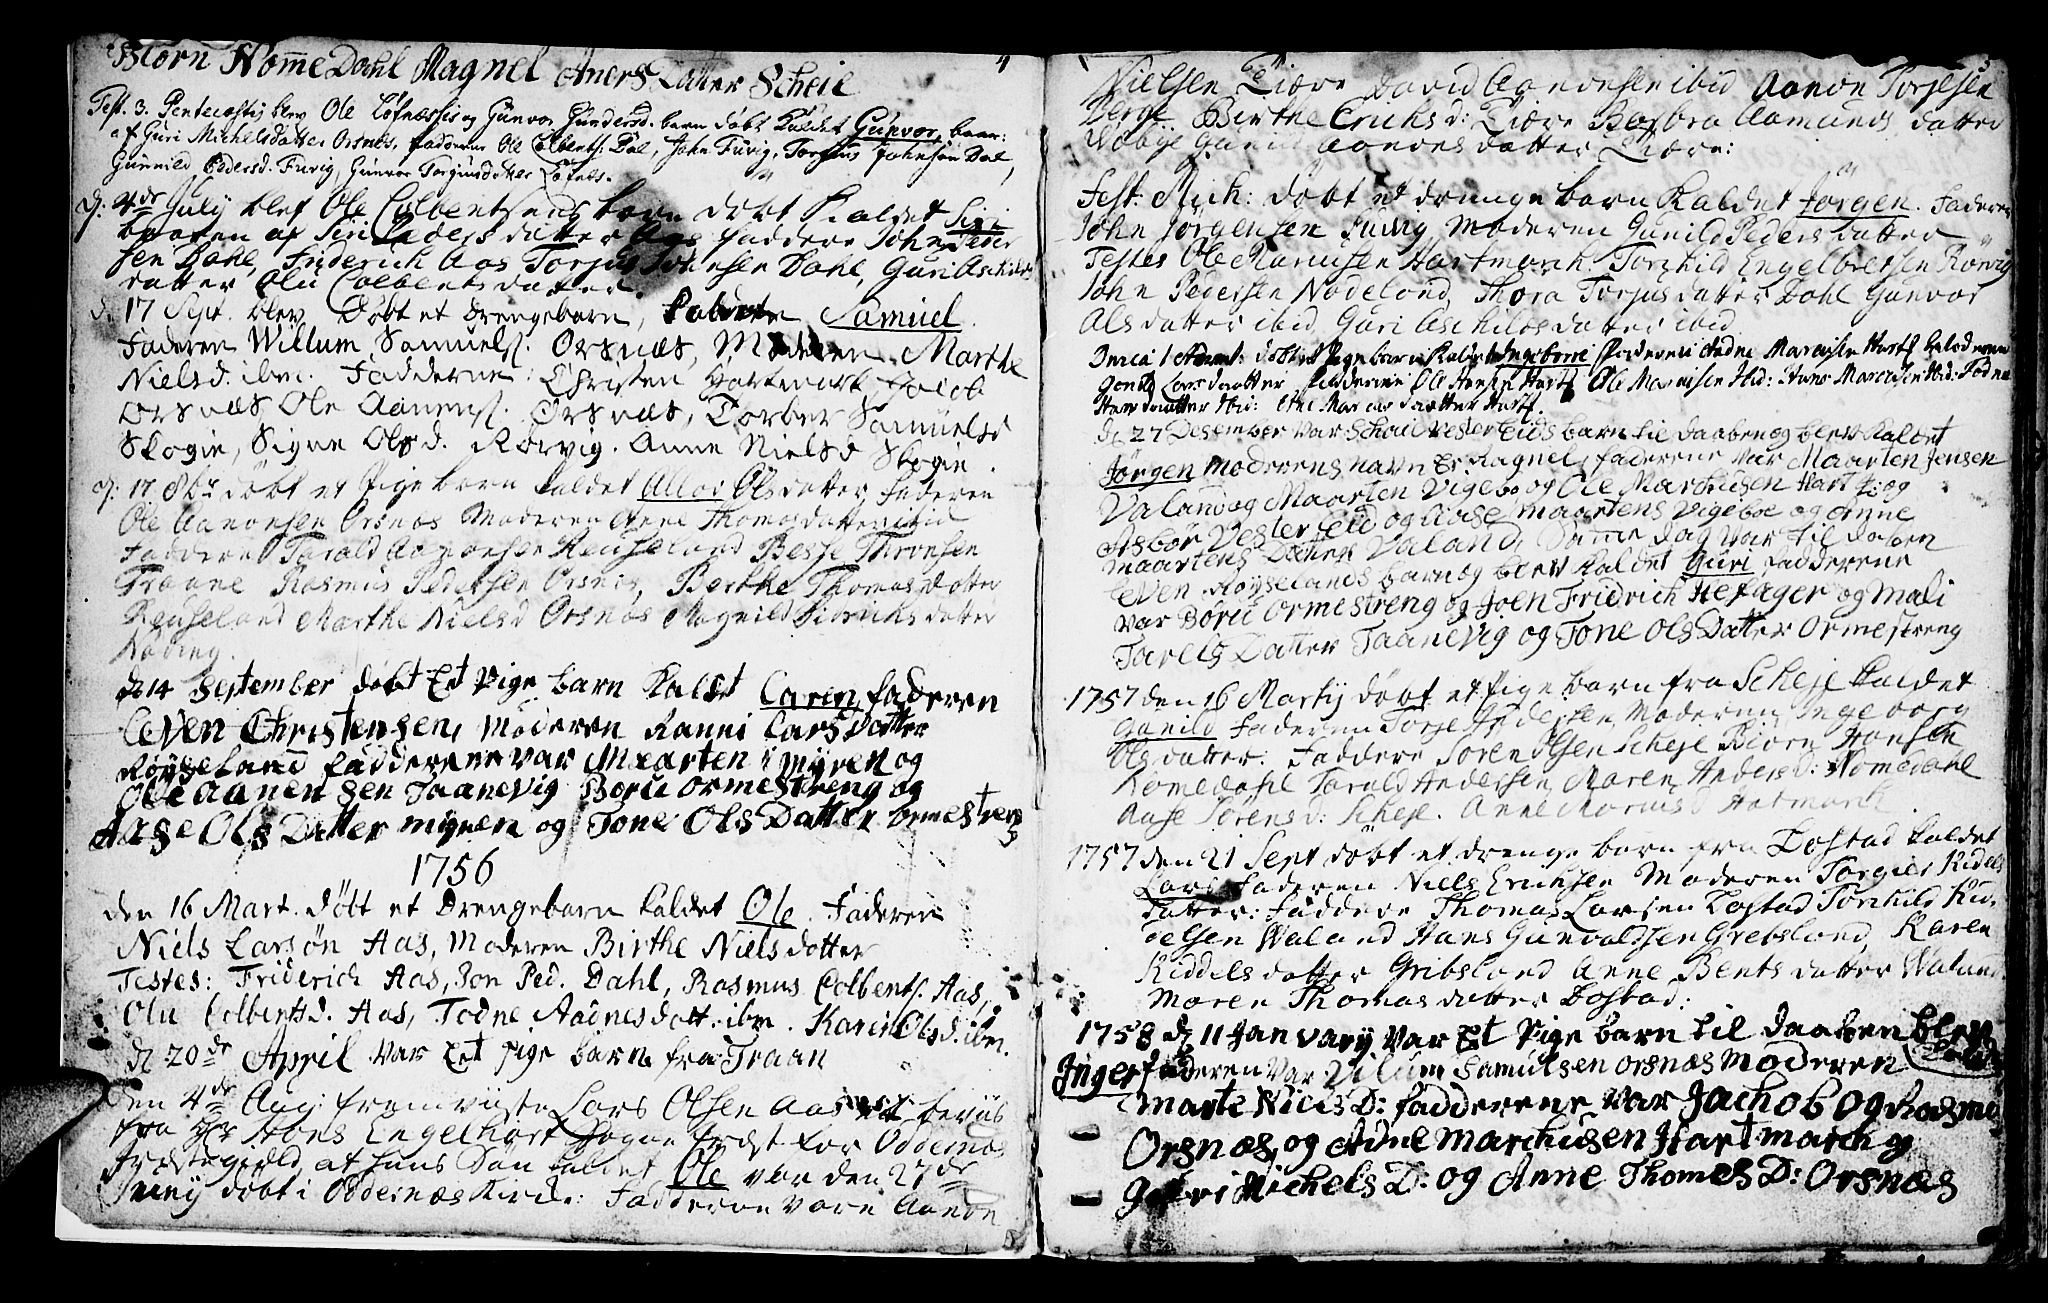 4
Biorn Nom̅eDahl Magnel Aners Datter Scheie
Fest. 3. Pentecostij blev Ole Løfnæssis og Gunvor Gundersd. barn døbt Kaldet Gunvor, baar:
af Guri Michelsdatter Orsnes, fadderne Ole Colbents. Dal, John Fuvig, Torjuus Johnsøn Dal,
Gunnild Pedersd. Fuvig, Gunvor Torjusdatter Løfnes.
d: 4de July blef Ole Colbentsens barn døbt Kaldet Siri
baaren af Siri Peders datter Aas faddere John Peder
sen Dahl, Friderich Aas Torjus Johnsen Dahl, Guri Aschilds
datter Olu Colbents datter.
d. 17 Sept. blev Døbt et Drengebarn, kaldet Samuel.
Faderen Willum Samuels: Orsnæs, Moderen Marthe
Nielsd. ibm. Fadderne: Christen Hartmark Jacob
Orsnæs Ole Aanens. Orsnæs, Torber Samuelsd
Skogie, Signe Olsd. Rørvig. Anne Nielsd Skogie.
d: 17 8br døbt et Pige barn kaldet Allov Olsdatter faderen
Ole Aanonsen Orsnæs Moderen Anne Thomasdatter ibid
Faddere Tarald Aanonsen Reuseland Besse Thronsen
Traane Rasmus Pedersen Orsnes, Berthe Thomasdatter
Reuseland Marthe Nielsd Orsnæs Magnild Hendrichs datter
Roving.
d 14 September døbt Et Pige barn Kaldt Caren, faderen
Even Christensen, moderen Ranni Lars Datter
Røyseland fadderene var Maarten i myren og
Ole aanensen Taanevig Boru ormestreng og
Aase Ols Datter myren og Tone Ols Datter ormestreng
1756
den 16 Mart. døbt et Drengebarn kaldet Ole. Faderen
Niels Larsøn Aas, Moderen Birthe Nielsdatter
Testes: Friderich Aas, Jon Ped. Dahl, Rasmus Colbents. Aas,
Olu Colbentsd. Aas, Todne Aadnesdatt. ibm. Karen Olsd. ibm.
d 20de April var Et pige barn fra Traan
den 4de Aug: fremviiste Lars Olsen Aas et beviis
fra Hr Hans Engelhart Sogne Præst for Oddernæs
Præstegield at hans Søn kaldet Ole var den 27de
Juny døbt i Oddernæs Kirke: Fadderne vare Aanon
5
Nielsen Tiære David Aanonsen ibid Aanon Torjesen
Berge Birthe Erichs d: Tiære Barbra Aamunds datter
Wobye Gunild Aanonsdatter Tiære:
Fest: Mich: døbt et drenge barn Kaldet Jørgen. Faderen
John Jörgensen Fuvig Moderen Gunild Peders datter
Testes Ole Marcusen Hartmarch. Torchild Engelbretsen Rövig
John Pedersen Nodeland, Thora Torjus datter Dahl Gunvor
Als datter ibid, Guri Aschilds datter ibid
Dnica 1 Advent: døbt et Pige barn Kaldet Ingeborre faderen Aadne Marcusen Hartf Moderen
Gonild Lars daatter fadderne Ole Hansen Hartf Ole Marcusen Ibid: Hans Marcusen Ibid: Todne
Hans daatter Ibid: Ane Marcus daatter Hartf.
d 27 Desember var Schau Vester Eids barn til daaben og blev Kaldet
Jørgen moderens navn Er Ragnel, fadderene var Maarten Jensen
Valand og Maarten Vigeboe og Ole Marchusen Hartf: og
Asbør Vester Eid og Aase Maartens Vigeboe og Anne
maartens Datter Valand, Samme dag var til daaben
Even Røyselands barn og blev kaldet Guri fadderene
var Boru ormestreng og Joen Fridrich Hefager og Mali
Tarels Datter Taanevig og Tone Ols Datter Ormestreng
1757 den 16 Martij døbt et Pige barn fra Scheje Kaldet
Gonild Faderen Torje Andersen Moderen Ingeborg
Olsdatter: Faddere Soren Olsen Scheje Biörn Hansen
Nomedahl Tarald Andersen, Maren Andersd: Nomedahl
Aase Sörensd: Scheje. Anne Marcusd Hatmarch
1757 den 21 Sept døbt et drenge barn fra Tostad kaldet
Lars Faderen Niels Erichsen Moderen Torgier Kidels
datter: Faddere Thomas Larsen Tostad Torchild Kid-
delsen Waland Hans Gunvaldsen Grebsland, Karen
Kiddels datter Gribsland Anne Bents datter Waland
Maren Thomas datter Tostad:
1758 d 11 Januvary var Et Pige barn til daaben blev
Inger faderen var Vilum Samulsen orsnæs moderen kaldt
marte Niels D: fadderene var Jachob og Rasmus
Orsnæs, og Anne Marchusen Hartmarch og
Guri Michels D: og Anne Thomes D: Orsnæs